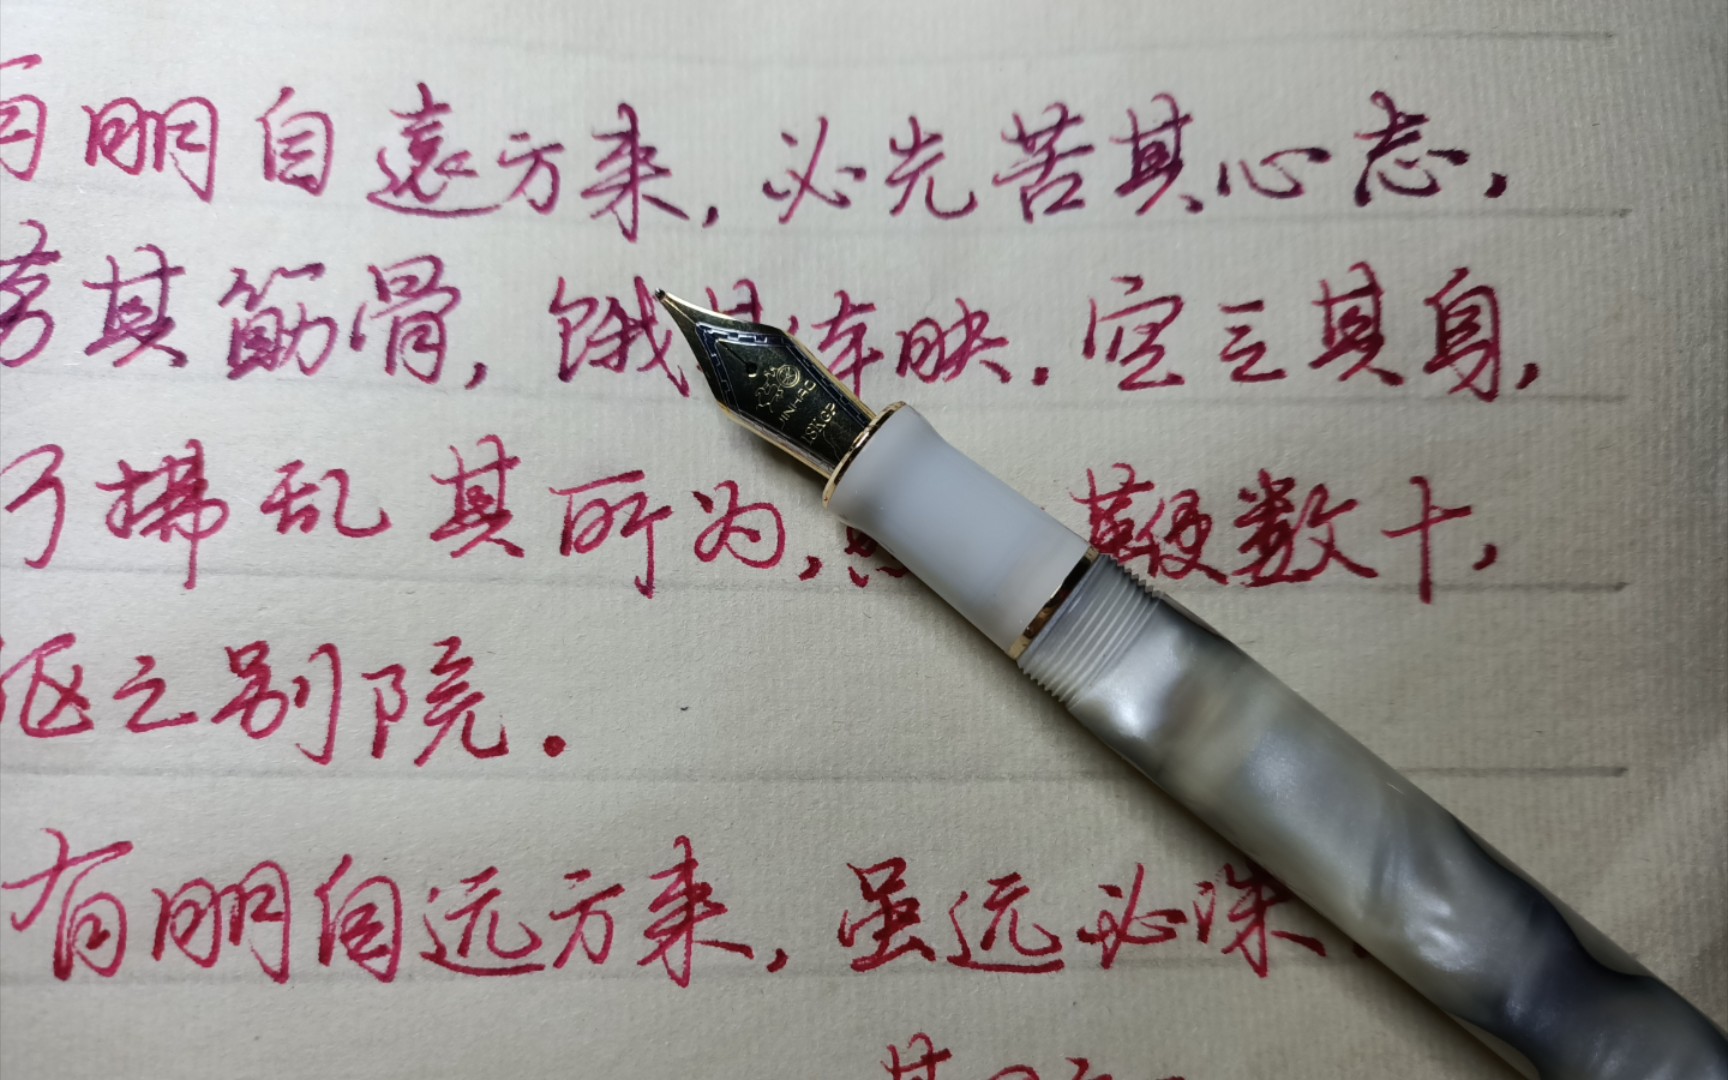 有朋自遠方来，必先苦其心志，
劳其筋骨，饿其体肤，空乏其身，
行拂乱其所为，鞭数十，
驱之别院。
有朋自远方来，虽远必诛
其
JINHAO
18KGP